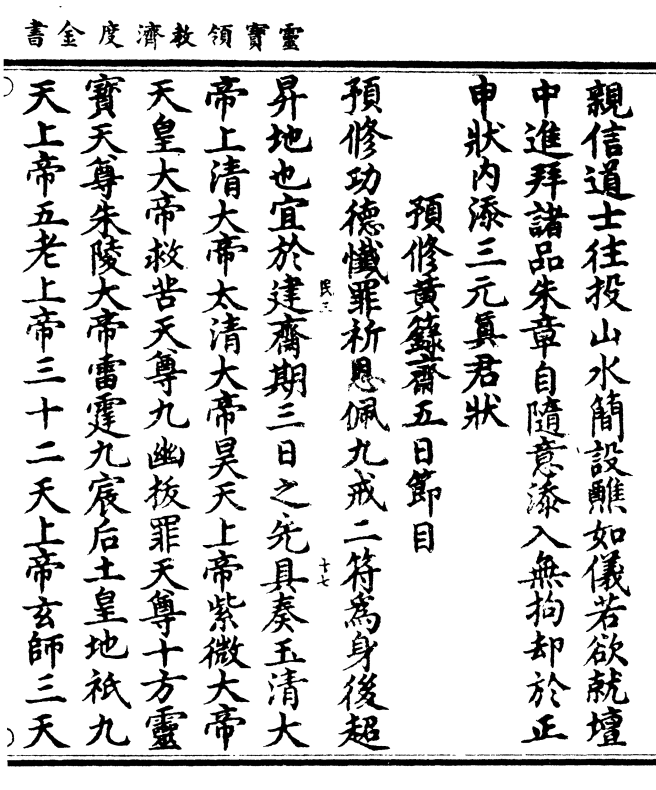 靈寶領教濟度金書
親信道士往投山水簡設醮如儀若欲就壇
中進拜諸品朱章自隨意添入無拘却於正
申狀內添三元眞君狀
預修黃籙齋五日節目
預修功德懺罪祈恩佩九戒二符為身後超
民三
十七
昇地也宜於建齋期三日之先具奏玉清大
帝上清大帝太清大帝昊天上帝紫微大帝
天皇大帝救苦天尊九幽拔罪天尊十方靈
寳天尊朱陵大帝雷霆九宸后土皇地祇九
天上帝五老上帝三十二天上帝玄師三天